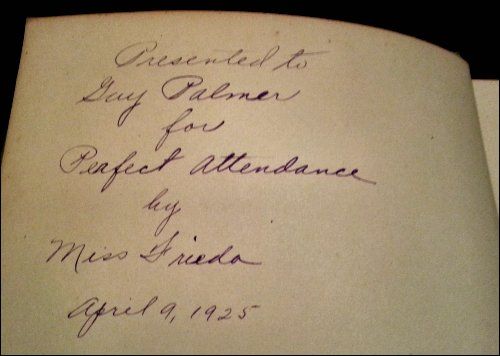 Presented to
Guy Palmer
for
Perfect Attendance
by
Miss Frieda
April 9, 1925